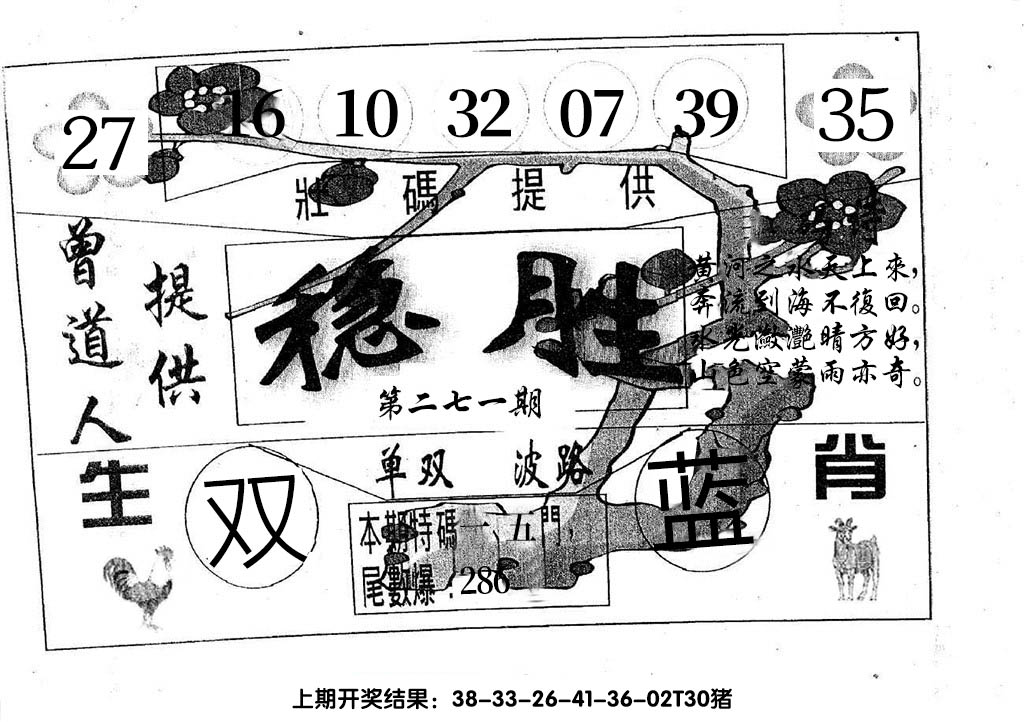 27 16 10 32 07 39 35
壯碼提供
特
曾道人
提供
稳胜
第二七一期
黄河之水天上來，
奔流到海不復回。
水光瀲灩晴方好，
山色空蒙雨亦奇。
单双 波路
生肖
双
蓝
本期特碼一、五門，
尾數爆：286
上期开奖结果：38-33-26-41-36-02T30猪